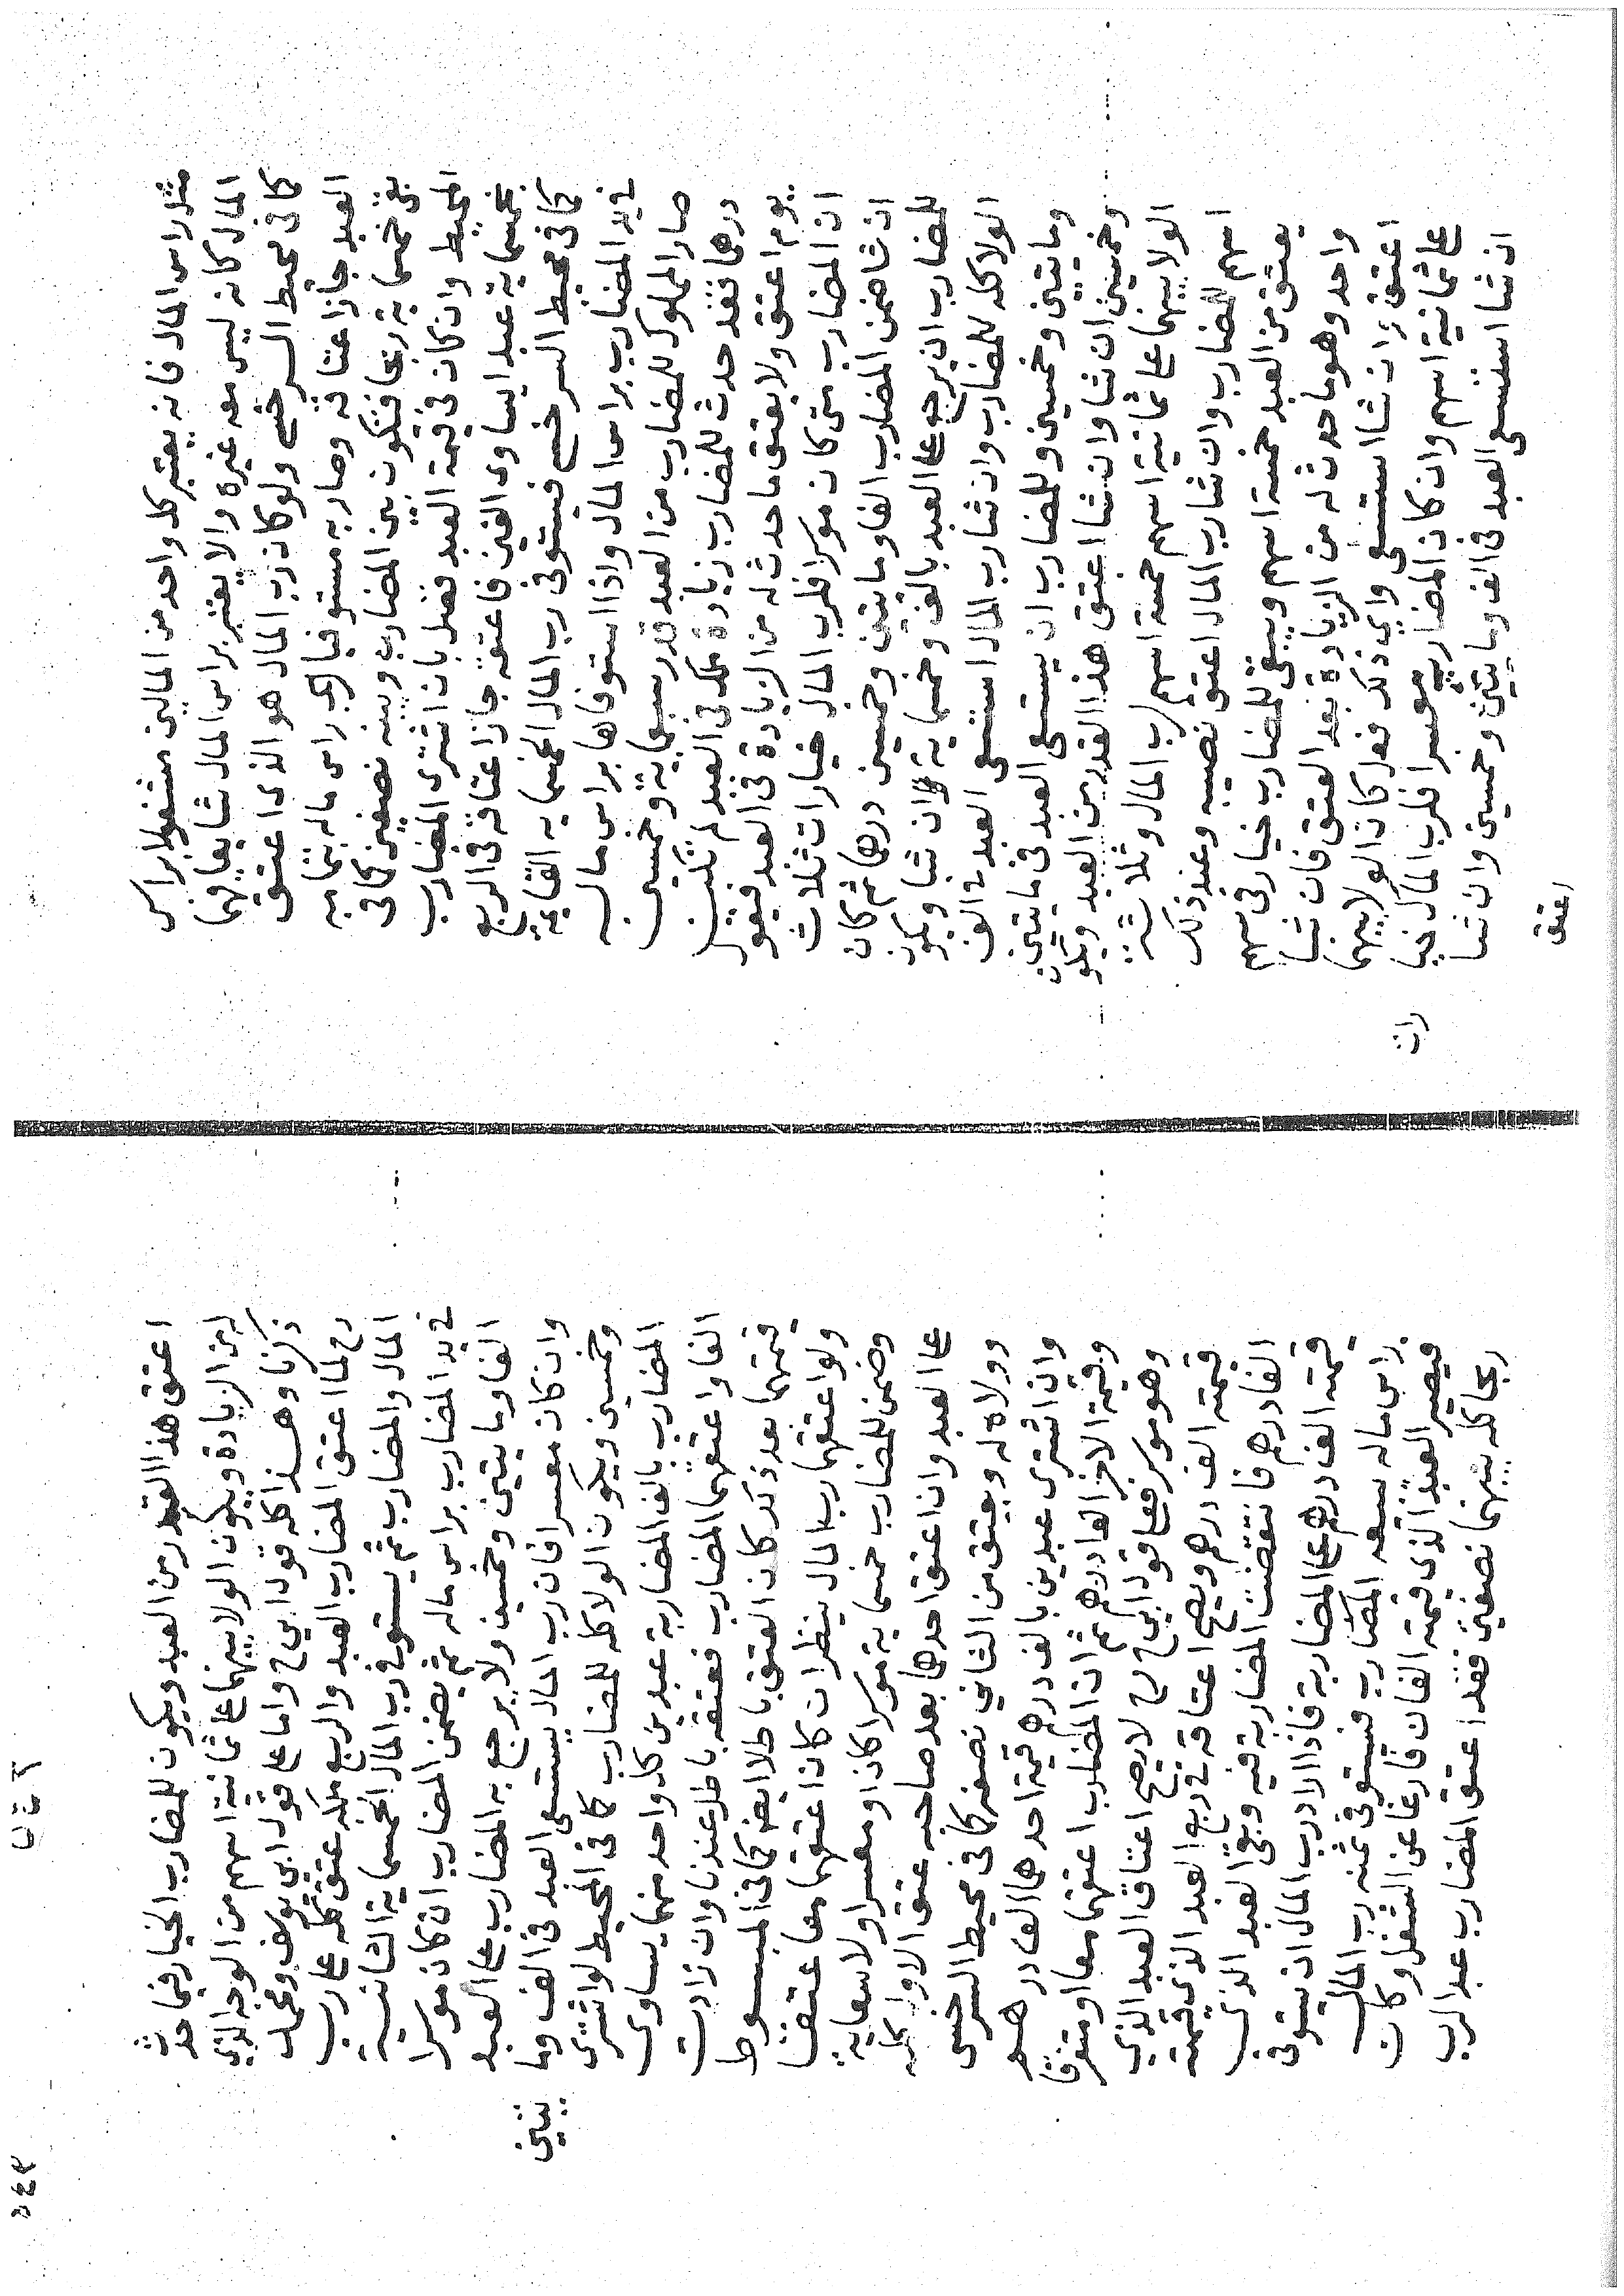 مثل راس المال فانه يعتبر كل واحد من المالين مشغولا براس
المال كانه ليس معه غيره ولا يعتبر براس المال شايعا فيهما
كما في محيط السرخسي ولو كان رب المال هو الذي اعتق
العبد جاز اعتاقه وصار به مستوفيا راس ماله بتمامه
بقى خمسماية ربحا فتكون بين المضارب وبينه نصفين كما في
المحيط وان كان في قيمة العبد فضل بان اشترى المضارب
بخمسماية عبدا يساوي الفين فاعتقه جاز اعتاقه في الربع
كما في محيط السرخسي فيستوفي رب المال الخمسماية القايمة
في يد المضارب براس المال واذا استوفاها براس ماله
صار المملوك للمضارب من العبد قدر سبعماية وخمسين
درهما فقد حدث للمضارب زيادة ملك في العبد لم تكن
يوم اعتق ولا يعتق ما حدث له من الزيادة في العبد فيقول
ان المضارب متى كان موسرا فلرب المال خيارات ثلاث
ان شا ضمن المضارب الفا ومايتين وخمسين درهما ثم كان
للمضارب ان يرجع على العبد بالف وخمسماية ان شا ويكون
الولا كله للمضارب وان شا رب المال استسعى العبد في الف
ومايتين وخمسين وللمضارب ان يستسعى العبد في مايتين
وخمسين ان شا وان شا اعتق هذا القدر من العبد ويكون
الولا بينهما على ثمانية اسهم خمسة اسهم لرب المال وثلاثة
اسهم للمضارب وان شا رب المال اعتق نصيبه وعند ذلك
يعتق من العبد خمسة اسهم ويبقى للمضارب خيار في سهم
واحد وهو ما حدث له من الزيادة بعد العتق فان شا
اعتق وان شا استسعى واي ذلك فعل كان الولا بينهما
على ثمانية اسهم وان كان المضارب معسرا فلرب المال خيار
ان شا استسعى العبد في الف ومايتين وخمسين وان شا
اعتق
ان
اعتق هذا القدر من العبد ويكون للمضارب الخيار فيما حدث
له من الزيادة ويكون الولا بينهما على ثمانية اسهم من الوجه الذي
ذكرنا وهذا كله قول ابي ح واما على قول ابي يوسف ومحمد
رح لما اعتق المضارب العبد والربع ملكه عتق كله على رب
المال والمضارب ثم يستوفي رب المال الخمسماية الثانية
في يد المضارب براس ماله ثم يضمن المضارب ان كان موسرا
الفا ومايتين وخمسين ولا يرجع به المضارب على العبد
وان كان معسرا فان رب المال يستسعى العبد في الف وما
يتين
وخمسين ويكون الولا كله للمضارب كما في المحيط لو اشترى
المضارب بالف المضاربة عبدين كل واحد منهما يساوي
الفا واعتقهما المضارب فعتقه باطل عندنا وان زادت
قيمتهما بعد ذلك كان العتق باطلا ايضا كما في المبسوط
ولو اعتقهما رب المال ينظر ان كان اعتقهما معا عتقا
وضمن للمضارب خمسماية موسرا كان او معسرا ولا سعاية
على العبد وان اعتق احدهما بعد صاحبه عتق الاول كله
وولاه له ويعتق من الثاني نصفه كما في محيط السرخسي
وان اشترى عبدين بالف درهم قيمة احدهما الف درهم
وقيمة الاخر الفا درهم ثم ان المضارب اعتقهما معا او متفرقا
وهو موسر فعلى قول ابي ح رح لا يصح اعتاق العبد الذي
قيمته الف درهم ويصح اعتاقه في ربع العبد الذي قيمته
الفا درهم فانتقضت المضاربة فيه وبقى العبد الذي
قيمته الف درهم على المضاربة فاذا اراد رب المال ان يستوفي
راس ماله يبيعه المضارب فيستوفي ثمنه رب المال
فيصير العبد الذي قيمته الفان فارغا عن الشغل وكان
ربحا كله بينهما نصفين فقد اعتق المضارب عبد الرب